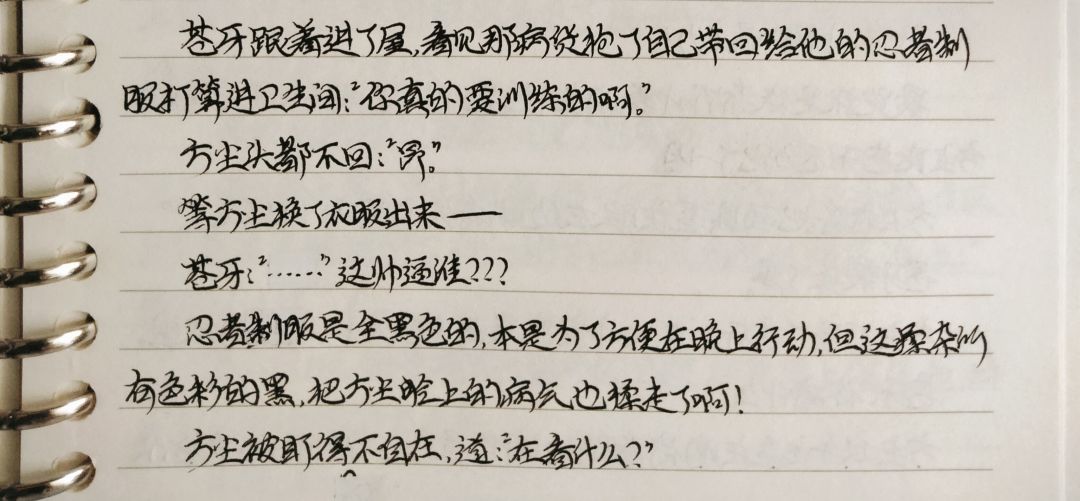 苍牙跟着进了屋,看见那病优抢了自己带回给他的忍者制
服打算进卫生间:“你真的要训练的啊。”
方尘头都不回:“昂。”
等方尘换了衣服出来——
苍牙:“……”这帅逼谁???
忍者制服是全黑色的,本是为了方便在晚上行动,但这糅杂所
有色彩的黑,把方尘脸上的病气也揉走了啊!
方尘被盯得不自在,道:“在看什么?”